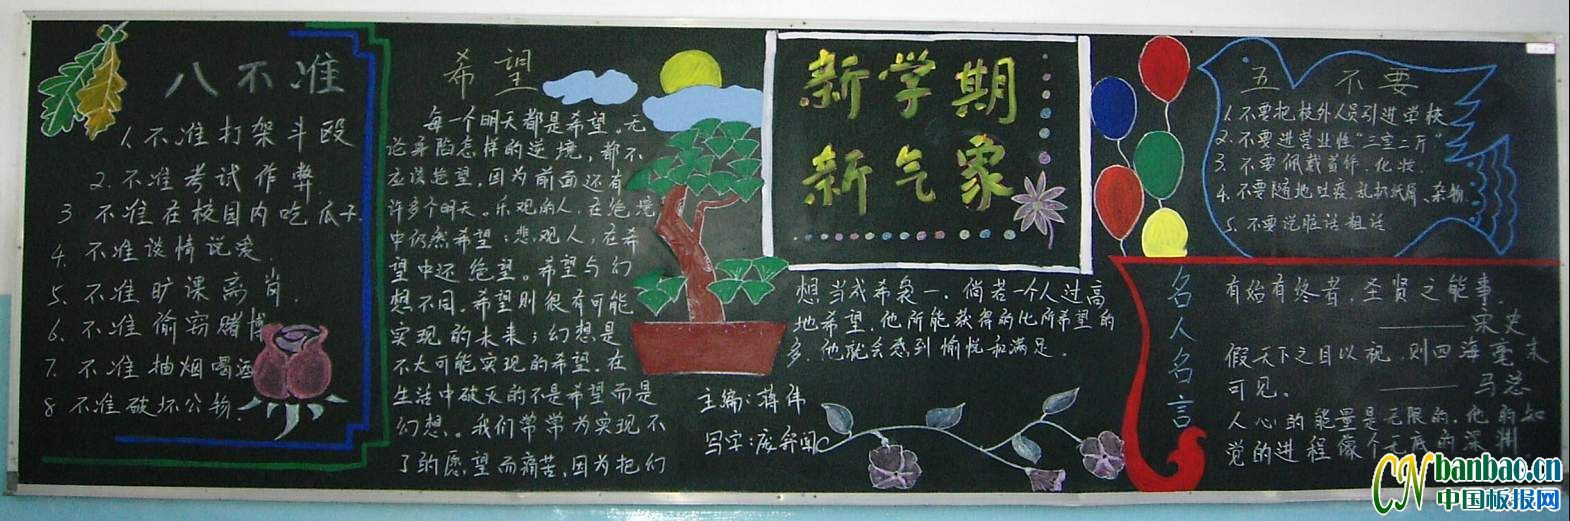 八不准
1.不准打架斗殴
2.不准考试作弊
3 不准在校园内吃瓜子.
4. 不准谈情说爱.
5. 不准旷课离肖.
6. 不准偷窃赌博
7. 不准抽烟喝酒
8 不准破坏公物
希望
每一个明天都是希望。无
论身陷怎样的逆境，都不
应该绝望，因为前面还有
许多个明天。乐观的人，在绝境
中仍然希望；悲观人，在希
望中还绝望。希望与幻
想不同。希望则很有可能
实现的未来；幻想是
不大可能实现的希望。在
生活中破灭的不是希望而是
幻想。我们常常为实现不
了的愿望而痛苦，因为把幻
想当成希
一.倘若一个人过高
地希望，他所能获得的比所希望的
多，他就会感到愉悦和满足.
主编:蒋伟
写字:
新学期
新气象
五不要
1.不要把校外人员引进学校
2.不要进营业性"三室二厅"
3.不要佩戴首饰、化妆.
4.不要随地吐痰、乱扔纸屑、杂物.
5.不要说脏话粗话
名人名言
有始有终者，圣贤之能事.
——宋史
假天下之目以视，则四海毫末
可见。——马总
人心的能量是无限的，他的如
党的进程像个无底的深
CN banbao.cn
中国板报网